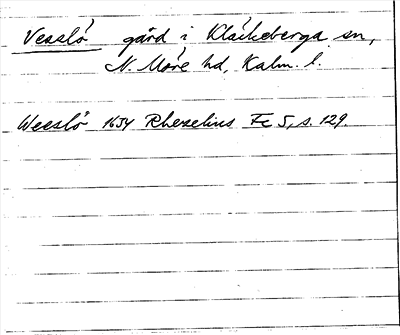 Vesslö gård i Kläckeberga sn,
N. Möre hd, Kalm. l.
Weeslö 1634 Rhezelius Fc 5, s. 129.